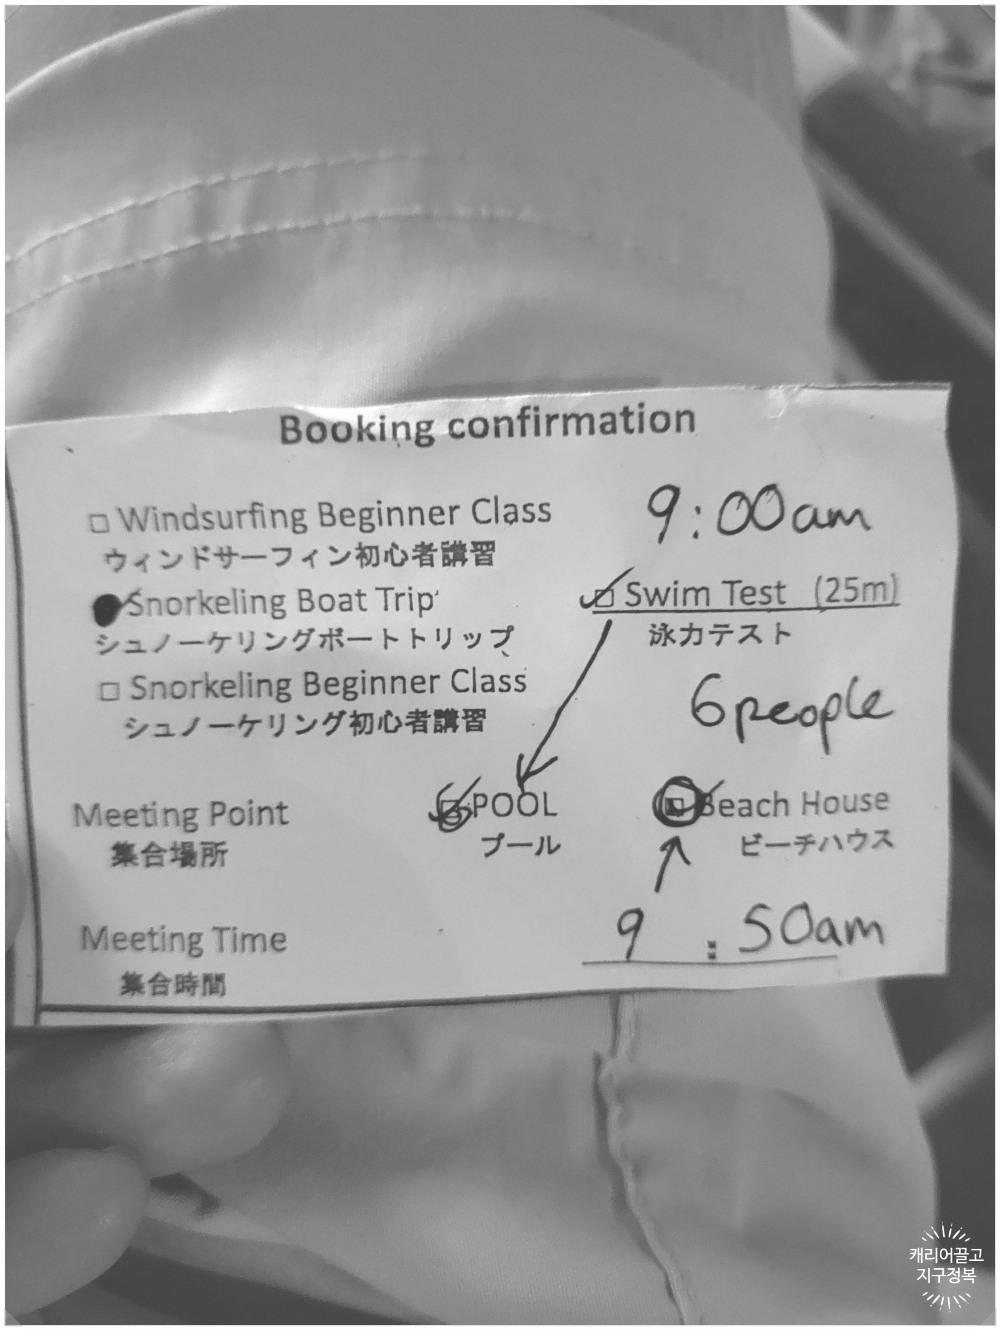 Booking confirmation
□ Windsurfing Beginner Class 9:00am
ウィンドサーフィン初心者講習
Snorkeling Boat Trip □ Swim Test (25m)
シュノーケリングボートトリップ 泳力テスト
□ Snorkeling Beginner Class 6 people
シュノーケリング初心者講習
Meeting Point □ POOL □ Beach House
集合場所 プール ビーチハウス
Meeting Time 9 : 50am
集合時間
캐리어끌고
지구정복